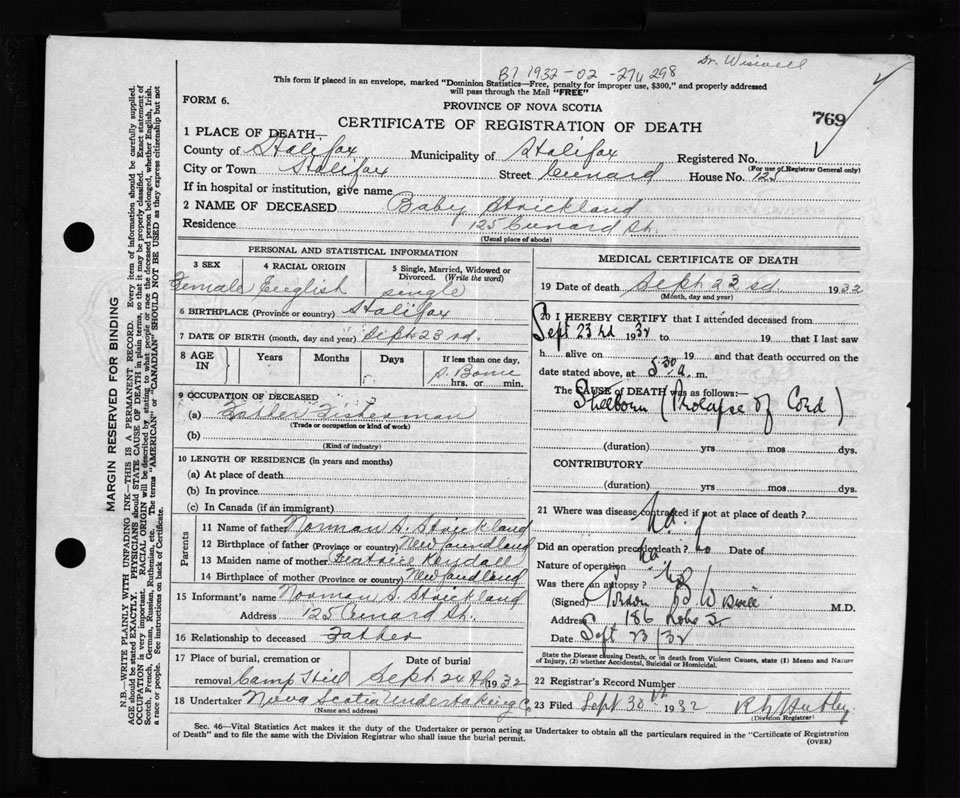 Dr. Wiswell
B7 1932-02-274298
This form if placed in an envelope, marked "Dominion Statistics—Free, penalty for improper use, $300," and properly addressed
will pass through the Mail "FREE"
FORM 6.
PROVINCE OF NOVA SCOTIA
769
CERTIFICATE OF REGISTRATION OF DEATH
1 PLACE OF DEATH—
County of Halifax Municipality of Halifax Registered No.
(For use of Registrar General only)
City or Town Halifax Street Cunard House No. 125
If in hospital or institution, give name
2 NAME OF DECEASED Baby Strickland
Residence 125 Cunard St.
(Usual place of abode)
PERSONAL AND STATISTICAL INFORMATION
3 SEX 4 RACIAL ORIGIN 5 Single, Married, Widowed or Divorced. (Write the word)
Female English single
6 BIRTHPLACE (Province or country) Halifax
7 DATE OF BIRTH (month, day and year) Sept 23rd.
8 AGE IN Years Months Days If less than one day,
S. Borne
hrs. or min.
9 OCCUPATION OF DECEASED
(a) Father Fisherman
(Trade or occupation or kind of work)
(b)
(Kind of industry)
10 LENGTH OF RESIDENCE (in years and months)
(a) At place of death
(b) In province
(c) In Canada (if an immigrant)
Parents
11 Name of father Norman S. Strickland
12 Birthplace of father (Province or country) Newfoundland
13 Maiden name of mother Kendall
14 Birthplace of mother (Province or country) Newfoundland
15 Informant's name Norman S. Strickland
Address 125 Cunard St.
16 Relationship to deceased Father
17 Place of burial, cremation or Date of burial
removal Camp Hill Sept 24th 1932
18 Undertaker Nova Scotia Undertaking Co
(Name and address)
MEDICAL CERTIFICATE OF DEATH
19 Date of death Sept 23rd. 1932
(Month, day and year)
20 I HEREBY CERTIFY that I attended deceased from
Sept 23rd 1932 to 19 that I last saw
h alive on 19 and that death occurred on
date stated above, at 5.30 a. m.
The CAUSE OF DEATH was as follows:—
Stillborn (Prolapse of Cord)
(duration) yrs mos dys.
CONTRIBUTORY
(duration) yrs mos dys.
21 Where was disease contracted if not at place of death?
Did an operation precede death? no Date of
Nature of operation
Was there an autopsy? no
(Signed) B Wiswell M.D.
Address 186
Date Sept 23/32
State the Disease causing Death, or in death from Violent Causes, state (1) Means and Nature
of Injury, (2) whether Accidental, Suicidal or Homicidal.
22 Registrar's Record Number
23 Filed Sept 30th 1932
(Division Registrar)
Sec. 46—Vital Statistics Act makes it the duty of the Undertaker or person acting as Undertaker to obtain all the particulars required in the "Certificate of Registration
of Death" and to file the same with the Division Registrar who shall issue the burial permit.
(OVER)
MARGIN RESERVED FOR BINDING
N.B.—WRITE PLAINLY WITH UNFADING INK—THIS IS A PERMANENT RECORD. Every item of information should be carefully supplied.
AGE should be stated EXACTLY. PHYSICIANS should STATE CAUSE OF DEATH in plain terms, so that it may be properly classified. Exact statement of
OCCUPATION is very important. RACIAL ORIGIN will be described by stating to what people or race the deceased person belonged, whether English, Irish,
Scotch, French, German, Russian, Ruthenian, etc. The terms "AMERICAN" or "CANADIAN" SHOULD NOT BE USED as they express citizenship but not
a race or people. See instructions on back of Certificate.